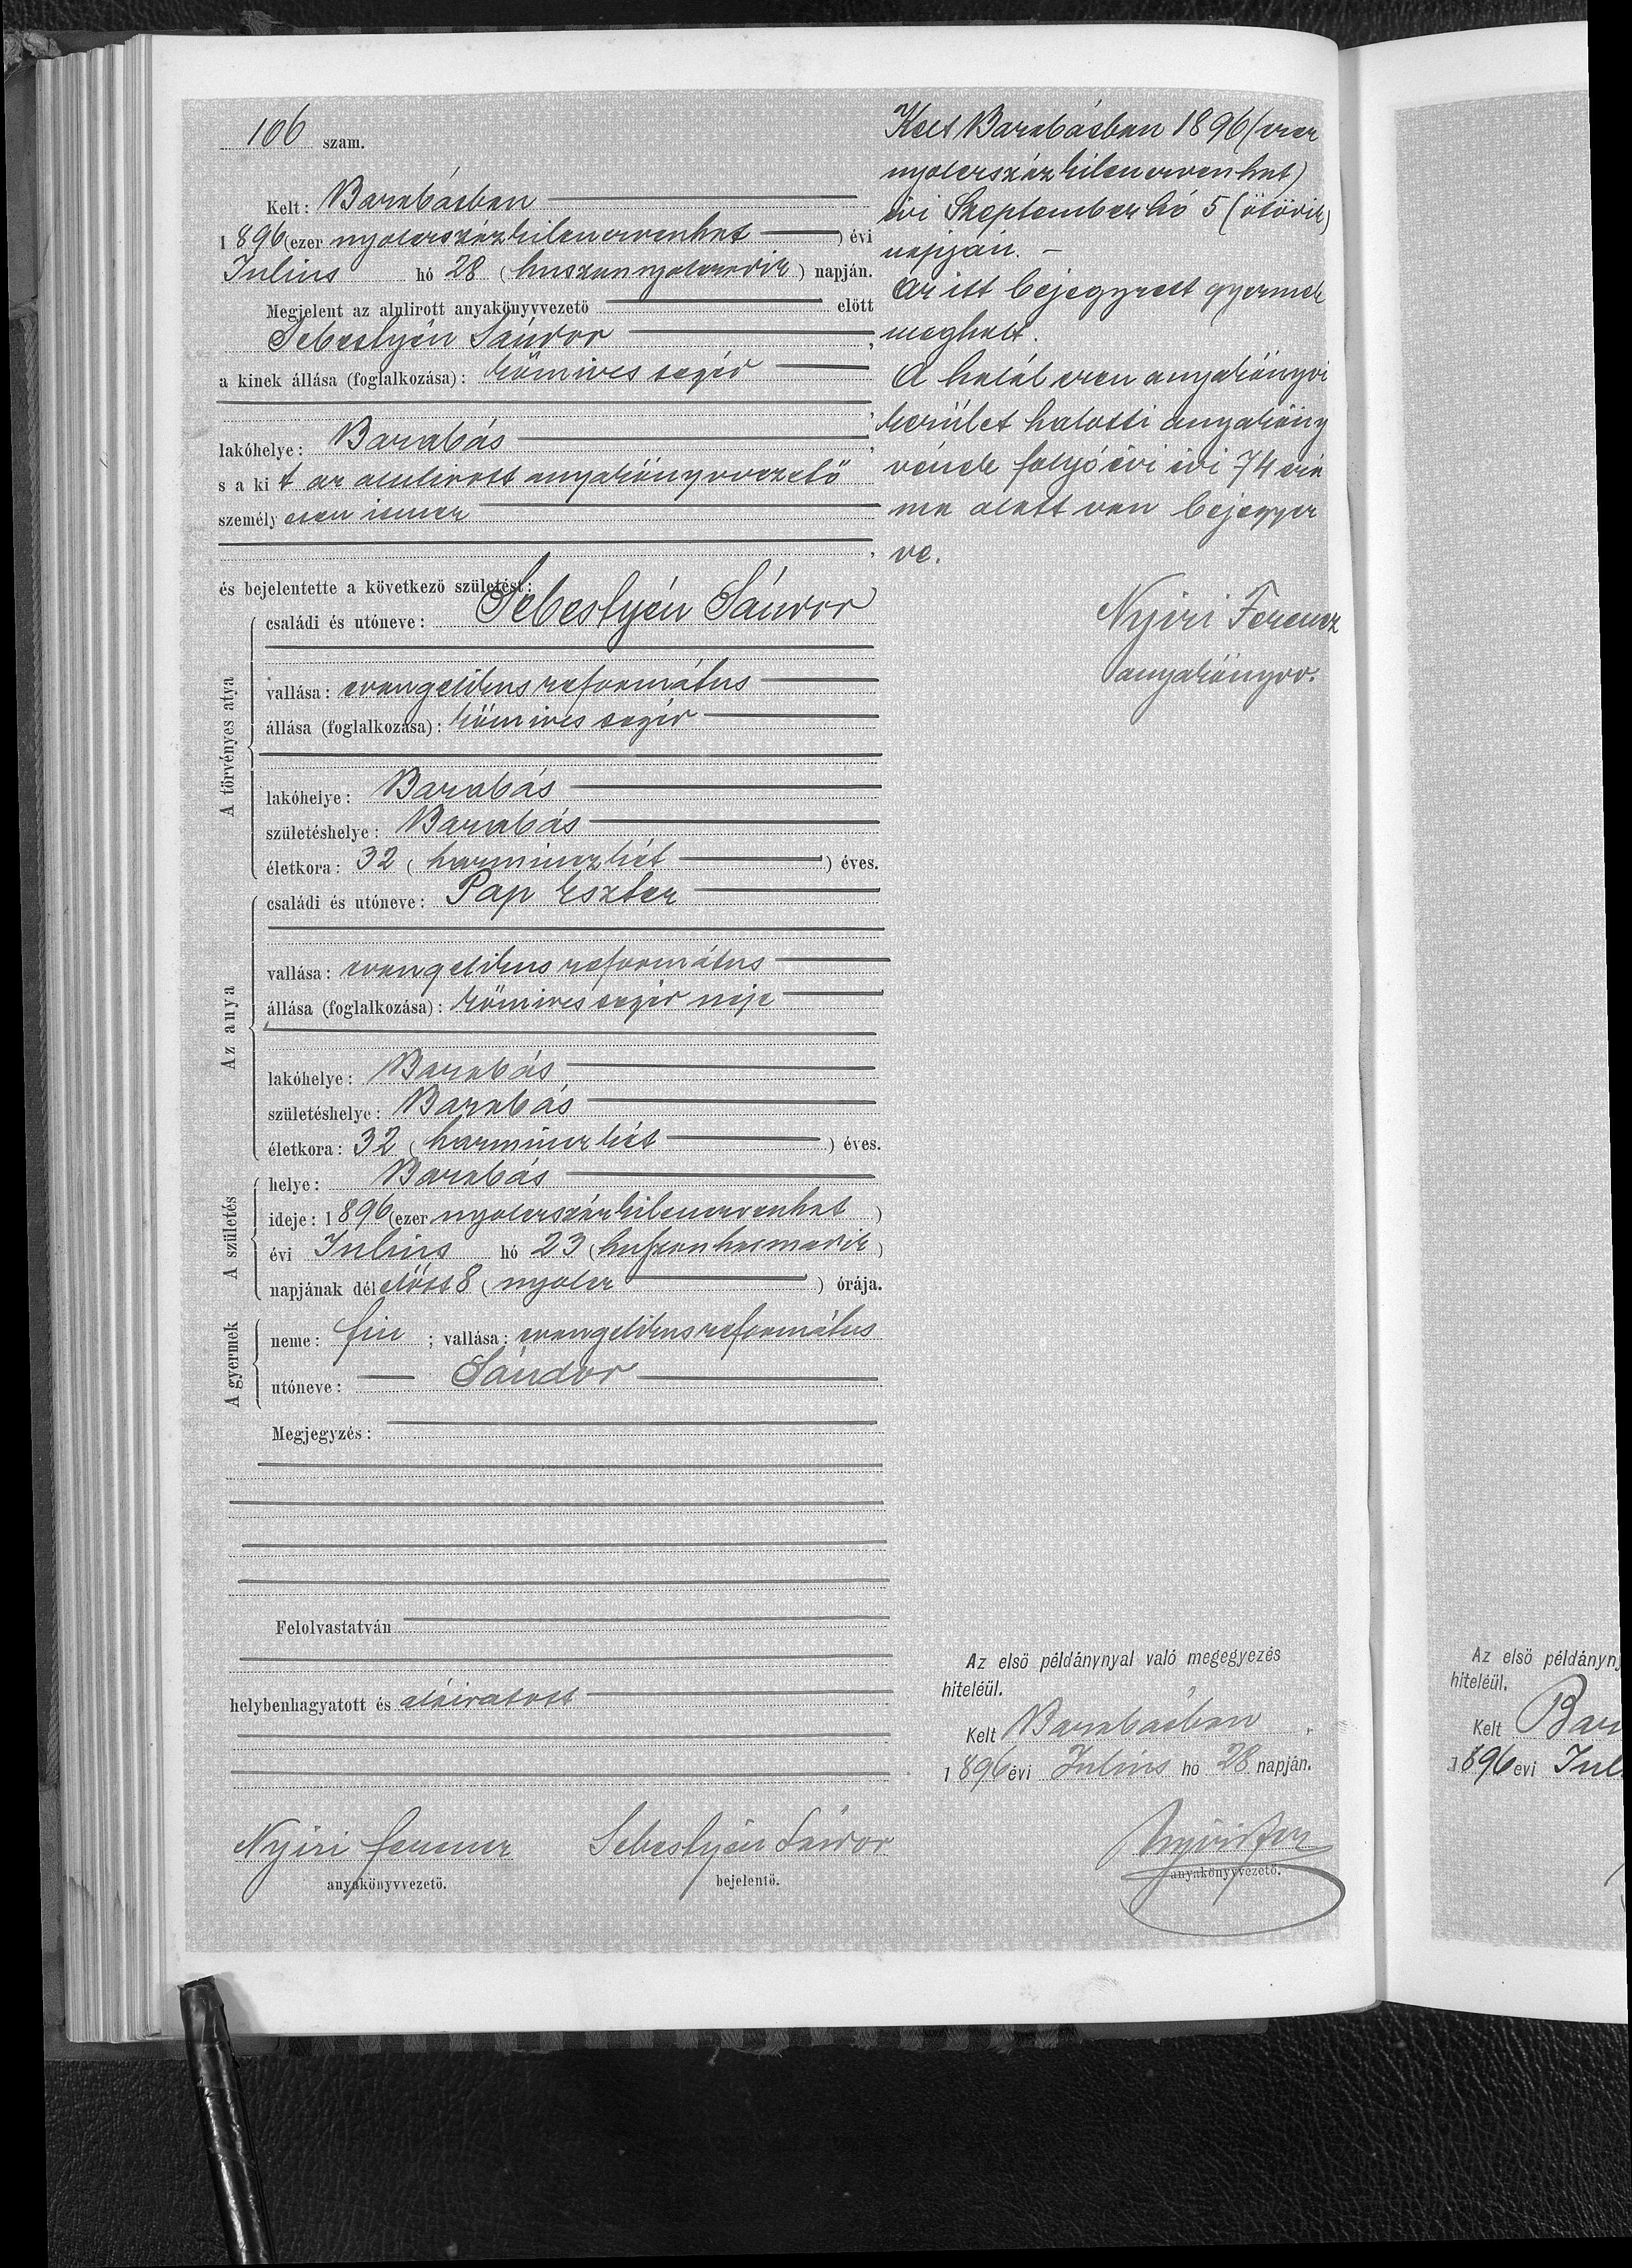 106 szám.
Kelt: Barabásban
1896 (ezer nyolczszázkilenczvenhat) évi
Julius hó 28 (huszonnyolczadik) napján.
Megjelent az alulirott anyakönyvvezető előtt
Sebestyén Sándor,
a kinek állása (foglalkozása): kőmives segéd
,
lakóhelye: Barabás,
s a kit az alulirott anyakönyvvezető
személyesen ismer
,
és bejelentette a következő születést:
A törvényes atya
családi és utóneve: Sebestyén Sándor
vallása: evangelikus református
állása (foglalkozása): kőmives segéd
lakóhelye: Barabás
születéshelye: Barabás
életkora: 32 (harminczkét) éves.
Az anya
családi és utóneve: Pap Eszter
vallása: evangelikus református
állása (foglalkozása): kőmives segéd neje
lakóhelye: Barabás
születéshelye: Barabás
életkora: 32 (harminczkét) éves.
A születés
helye: Barabás
ideje: 1896 (ezer nyolczszázkilenczvenhat)
évi Julius hó 23 (huszonharmadik)
napjának délelőtt 8 (nyolcz) órája.
A gyermek
neme: fiu; vallása: evangelikus református
utóneve: Sándor
Megjegyzés:
Felolvastatván
helybenhagyatott és aláiratott
Nyiri Ferencz
anyakönyvvezető.
Sebestyén Sándor
bejelentő.
Kelt Barabásban 1896 (ezer
nyolczszázkilenczvenhat)
évi Szeptember hó 5 (ötödik)
napján. –
Az itt bejegyzett gyermek
meghalt.
A halál ezen anyakönyvi
kerület halotti anyaköny
vének folyó évi évi 74 szá
ma alatt van bejegyez
ve.
Nyiri Ferencz
anyakönyvv.
Az első példánynyal való megegyezés
hiteléül.
Kelt Barabásban,
1896 évi Julius hó 28 napján.
Nyiri Fer
anyakönyvvezető.
Az első példányn
hiteléül.
Kelt Bar
1896 évi Jul